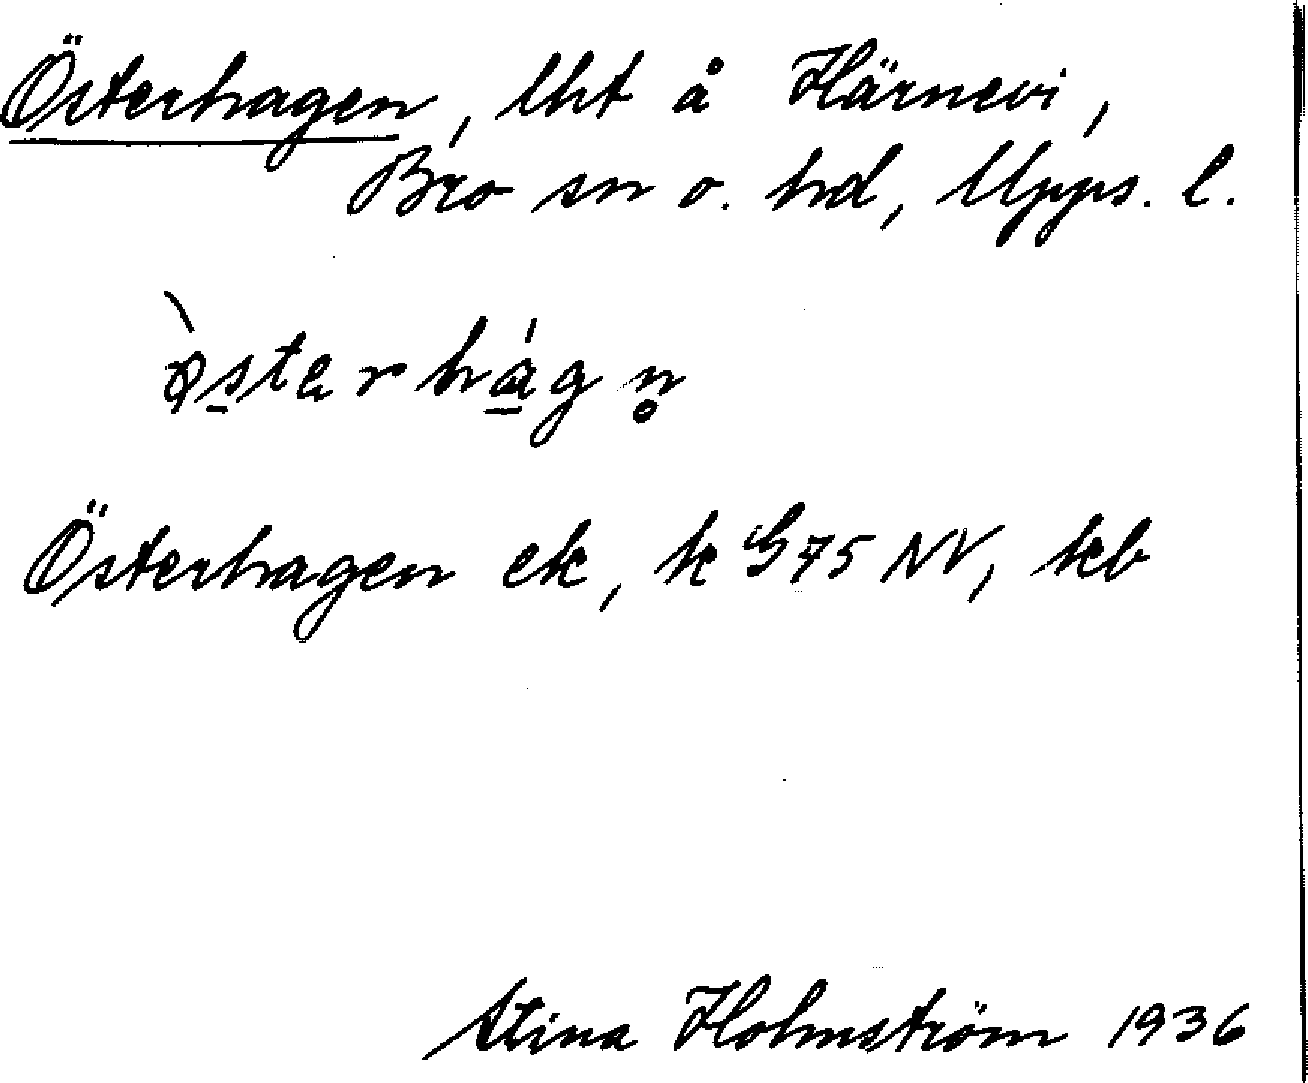 Österhagen, lht å Härnevi,
Bro sn o. hd, Upps. l.
Österhagen ek, k G75 NV, kb
Stina Holmström 1936